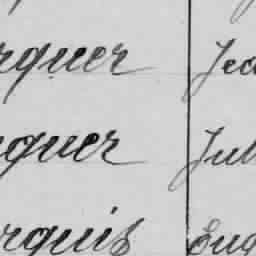 rquer Jea
quer Jul
rquis Eug